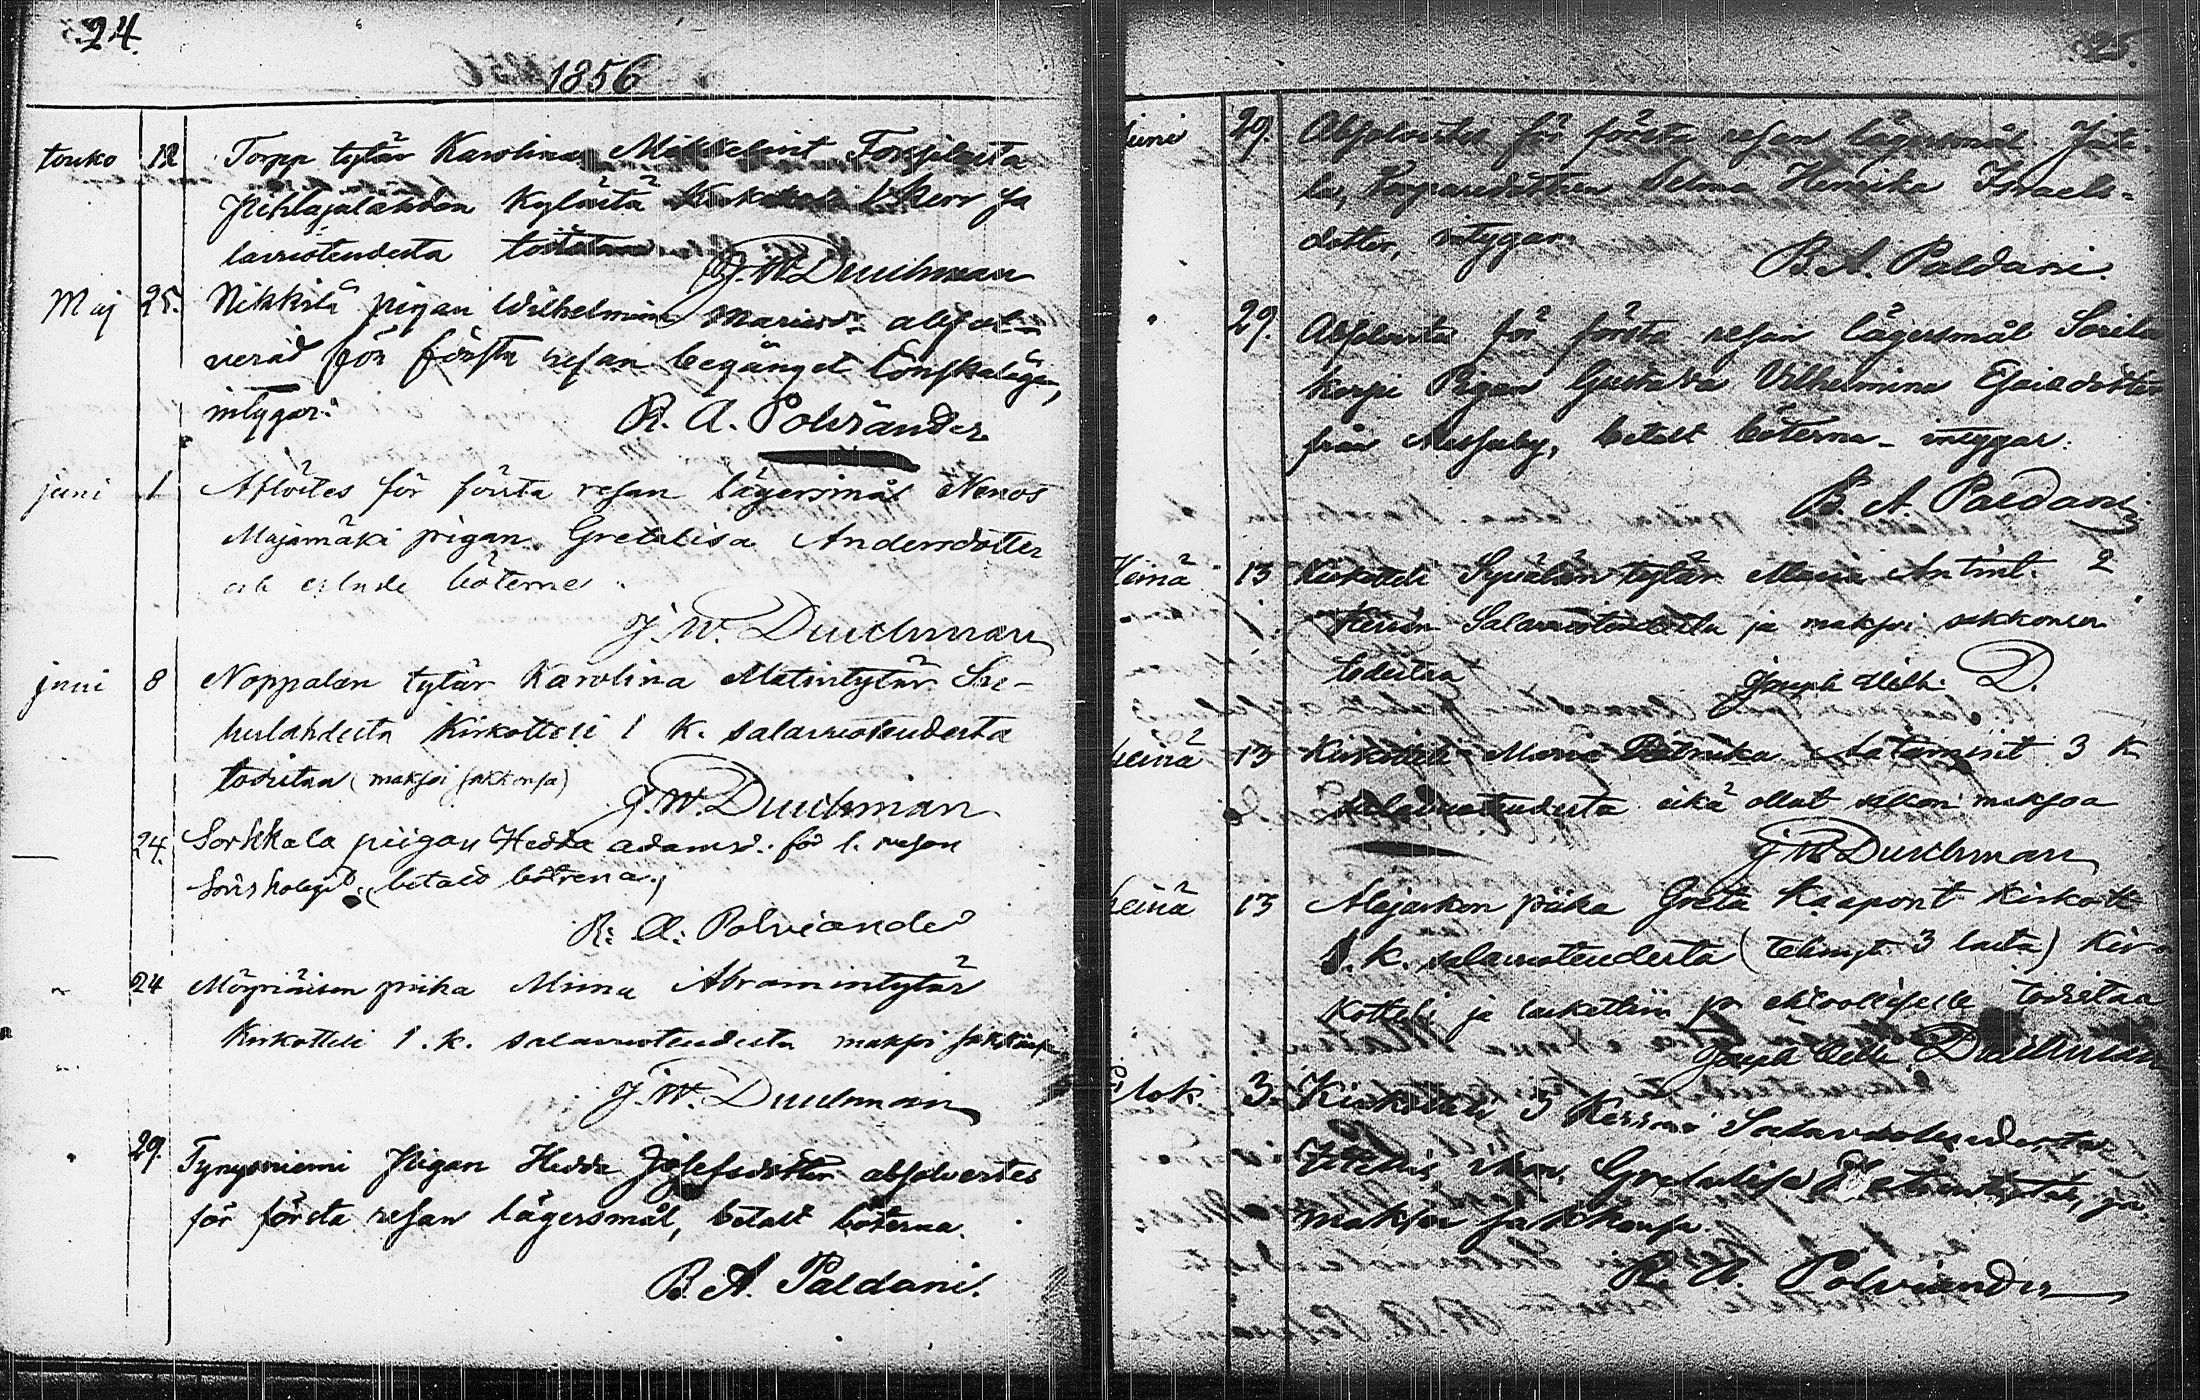 24.
1856
touko 12 Torpp tytär Karolina Mikkelint
Pihlajalahden Kylästä 1 Kerr ja
lauvotendesta todistaa
J. W. Durchman
Maj 25. Nikkilä pigan Wilhelmina Mariesdr absol-
verad för första resan begånget Lönskaläge,
intygar:
R. A. Polviander
juni 1 Aflöstes för första resan lägersmål Nenos
Majamäki pigan Gretalisa Andersdotter
och erlade böterne.
J. W. Durchman
juni 8 Noppalan tytär Karolina Matintytär Su-
hulahdesta Kirkotteli 1 K. salavuoteudesta
todistaa (maksoi sakkonsa)
J. W. Durchman
24. Sorkkala piigan Hedda adamsd. för 1. resan
betald böterna,
R. A. Polviander
24 Möyriäisen piika Miina Abramintytär
Kirkotteli 1. k. salavuoteudesta maksoi
J. W. Durchman
29. Tynysniemi Pigan Hedda Josefsdotter absolvertes
för första resan lägersmål, betalt böterna.
B. A. Paldani.
25.
Juni 29. Absolvertes för första resan lägersmål
Selma Henrika Israels-
dotter, intygar
B. A. Paldani.
29. Absolverta för första resan lägersmål
korpi Pigan Gustava Vilhelmina Esaiadotter
från betalt böterna - intygar.
B. A. Paldani
Heinä 13 Kirkotteli Syvälän tytär Maria Antint. 2
Kerran Salavuoteudesta ja maksoi sakkonsa
todistaa
Joseph Wilh. D.
heinä 13 Kirkotteli Maria 3 K
salavuoteudesta eikä ollut sakkon maksoa
J W Durchman
heinä 13 piika Greta Kaapont Kirkott
1. k. salavuoteudesta (tehnyt 3 lasta) Kir-
kotteli ja todistaa
Joseph Wilh Durchman
Elok. 3. Kirkotteli 3 Kerran Salavuoteudesta
Gretalisa ja
maksoi sakkonsa.
R. A. Polviander